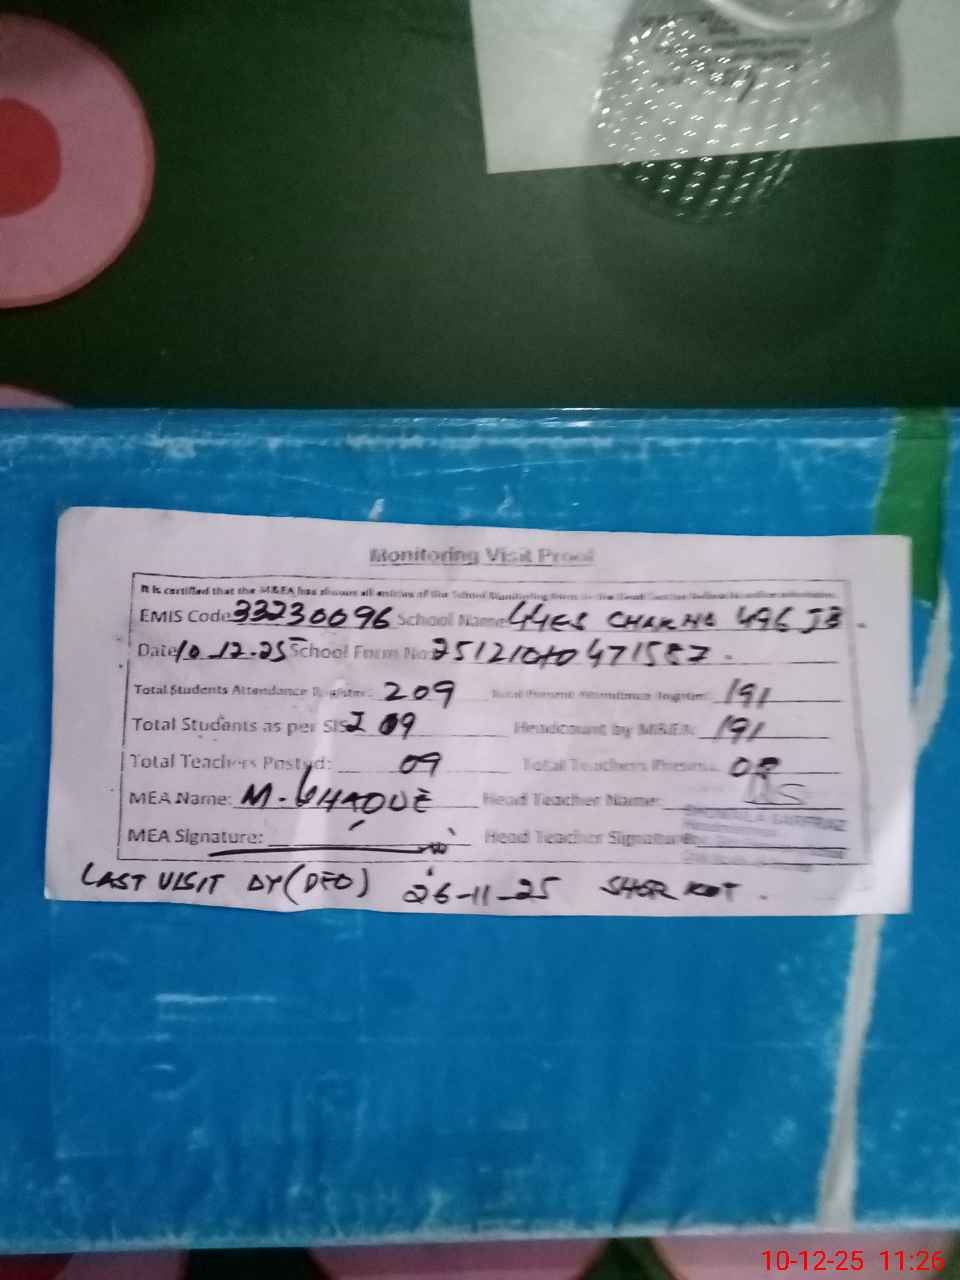 Monitoring Visit Proof
It is certified that the M&EA has shown all entries of the School Monitoring Form to the Head
EMIS Code 33230096 School Name CHAK NO 496 JB.
Date 10.12.25 School Form No 
Total Students Attendance Register: 209 Total Present Attendance Register: 191
Total Students as per SIS 209 Headcount by M&EA: 191
Total Teachers Posted: 09 Total Teachers Present:
MEA Name: Head Teacher Name:
MEA Signature: Head Teacher Signature:
LAST VISIT BY (DEO) 26-11-25 SHOR KOT.
10-12-25 11:26